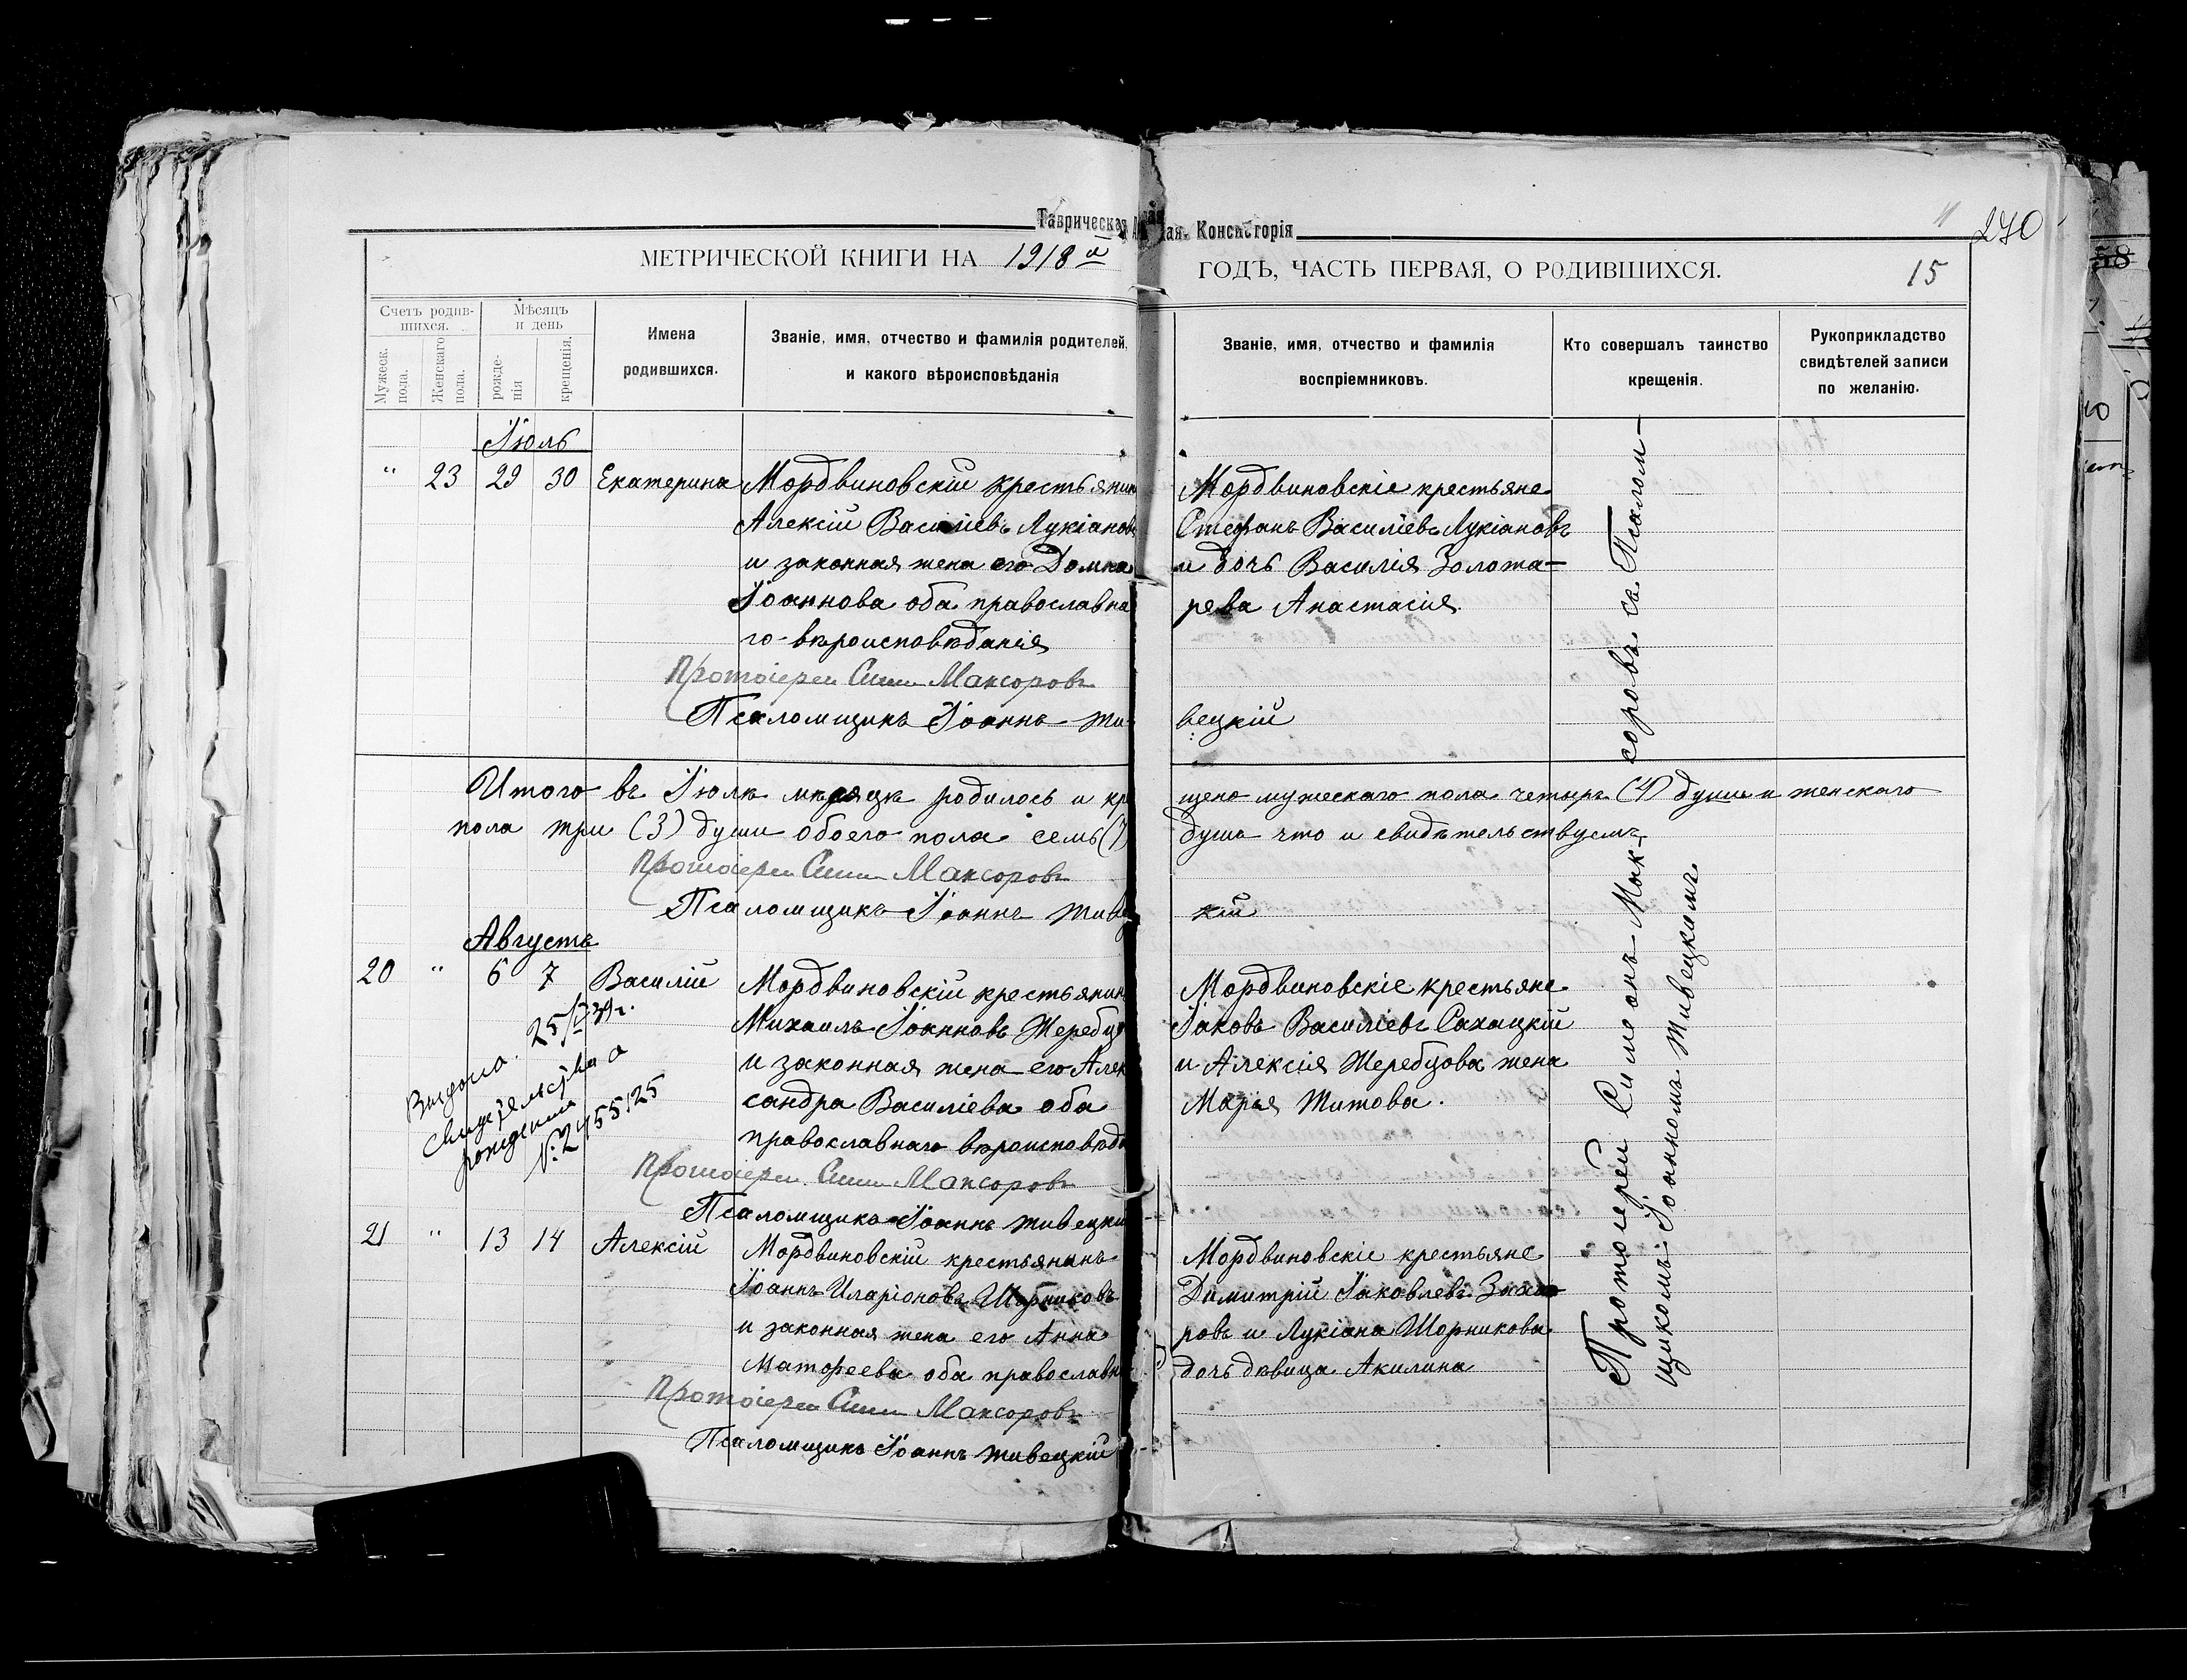 Таврическая
ая Консисторія
МЕТРИЧЕСКОЙ КНИГИ НА 1918 й
ГОДЪ, ЧАСТЬ ПЕРВАЯ, О РОДИВШИХСЯ.
270
15
Счетъ родив-
шихся.
Мужеск.
пола.
Женскаго
пола.
Мѣсяцъ
и день
рожде-
нія
крещенія.
Имена
родившихся.
Званіе, имя, отчество и фамилія родителей,
и какого вѣроисповѣданія
Званіе, имя, отчество и фамилія
воспріемниковъ.
Кто совершалъ таинство
крещенія.
Рукоприкладство
свидѣтелей записи
по желанію.
Іюль
" 23 29 30 Екатерина
Мордвиновскій крестьянин
Алексій Василіевъ Лукіановъ
и законная жена его Домна
Іоаннова оба православна
го вѣроисповѣданія
Протоіерей Симеонъ Максоровъ
Псаломщикъ Іоаннъ Жи
Мордвиновскіе крестьяне
Стефанъ Василіевъ Лукіановъ
и дочь Василія Золота-
рева Анастасія.
вецкій
Итого въ Іюлѣ мѣсяцѣ родилось и кр
щено мужескаго пола четыре (4) души и женскаго
пола три (3) души обоего пола семь (7)
душъ что и свидѣтельствуемъ
Протоіерей Симеонъ Максоровъ
Псаломщикъ Іоаннъ Живец
кій
Августъ
20 " 6 7 Василій
Мордвиновскій крестьянин
Михаилъ Іоанновъ Жеребц
и законная жена его Алек
сандра Василіева оба
православнаго вѣроисповѣд
Протоіерей Симеонъ Максоровъ
Псаломщикъ Іоаннъ Живецкі
Мордвиновскіе крестьяне
Іаковъ Василіевъ Сахацкій
и Алексія Жеребцова жена
Марія Титова.
Выдано
свидетельство о
рождении
21 " 13 14 Алексій
Мордвиновскій крестьянинъ
Іоаннъ Иларіоновъ Шорниковъ
и законная жена его Анна
Матфеева оба православн
Протоіерей Симеонъ Максоровъ
Псаломщикъ Іоаннъ Живецкій
Мордвиновскіе крестьяне
Димитрій Іаковлевъ Заха
ровъ и Лукіана Шорникова
дочь дѣвица Акилина
Протоіерей Симеонъ Мак-
соровъ съ Псалом-
щикомъ Іоанномъ Живецкимъ